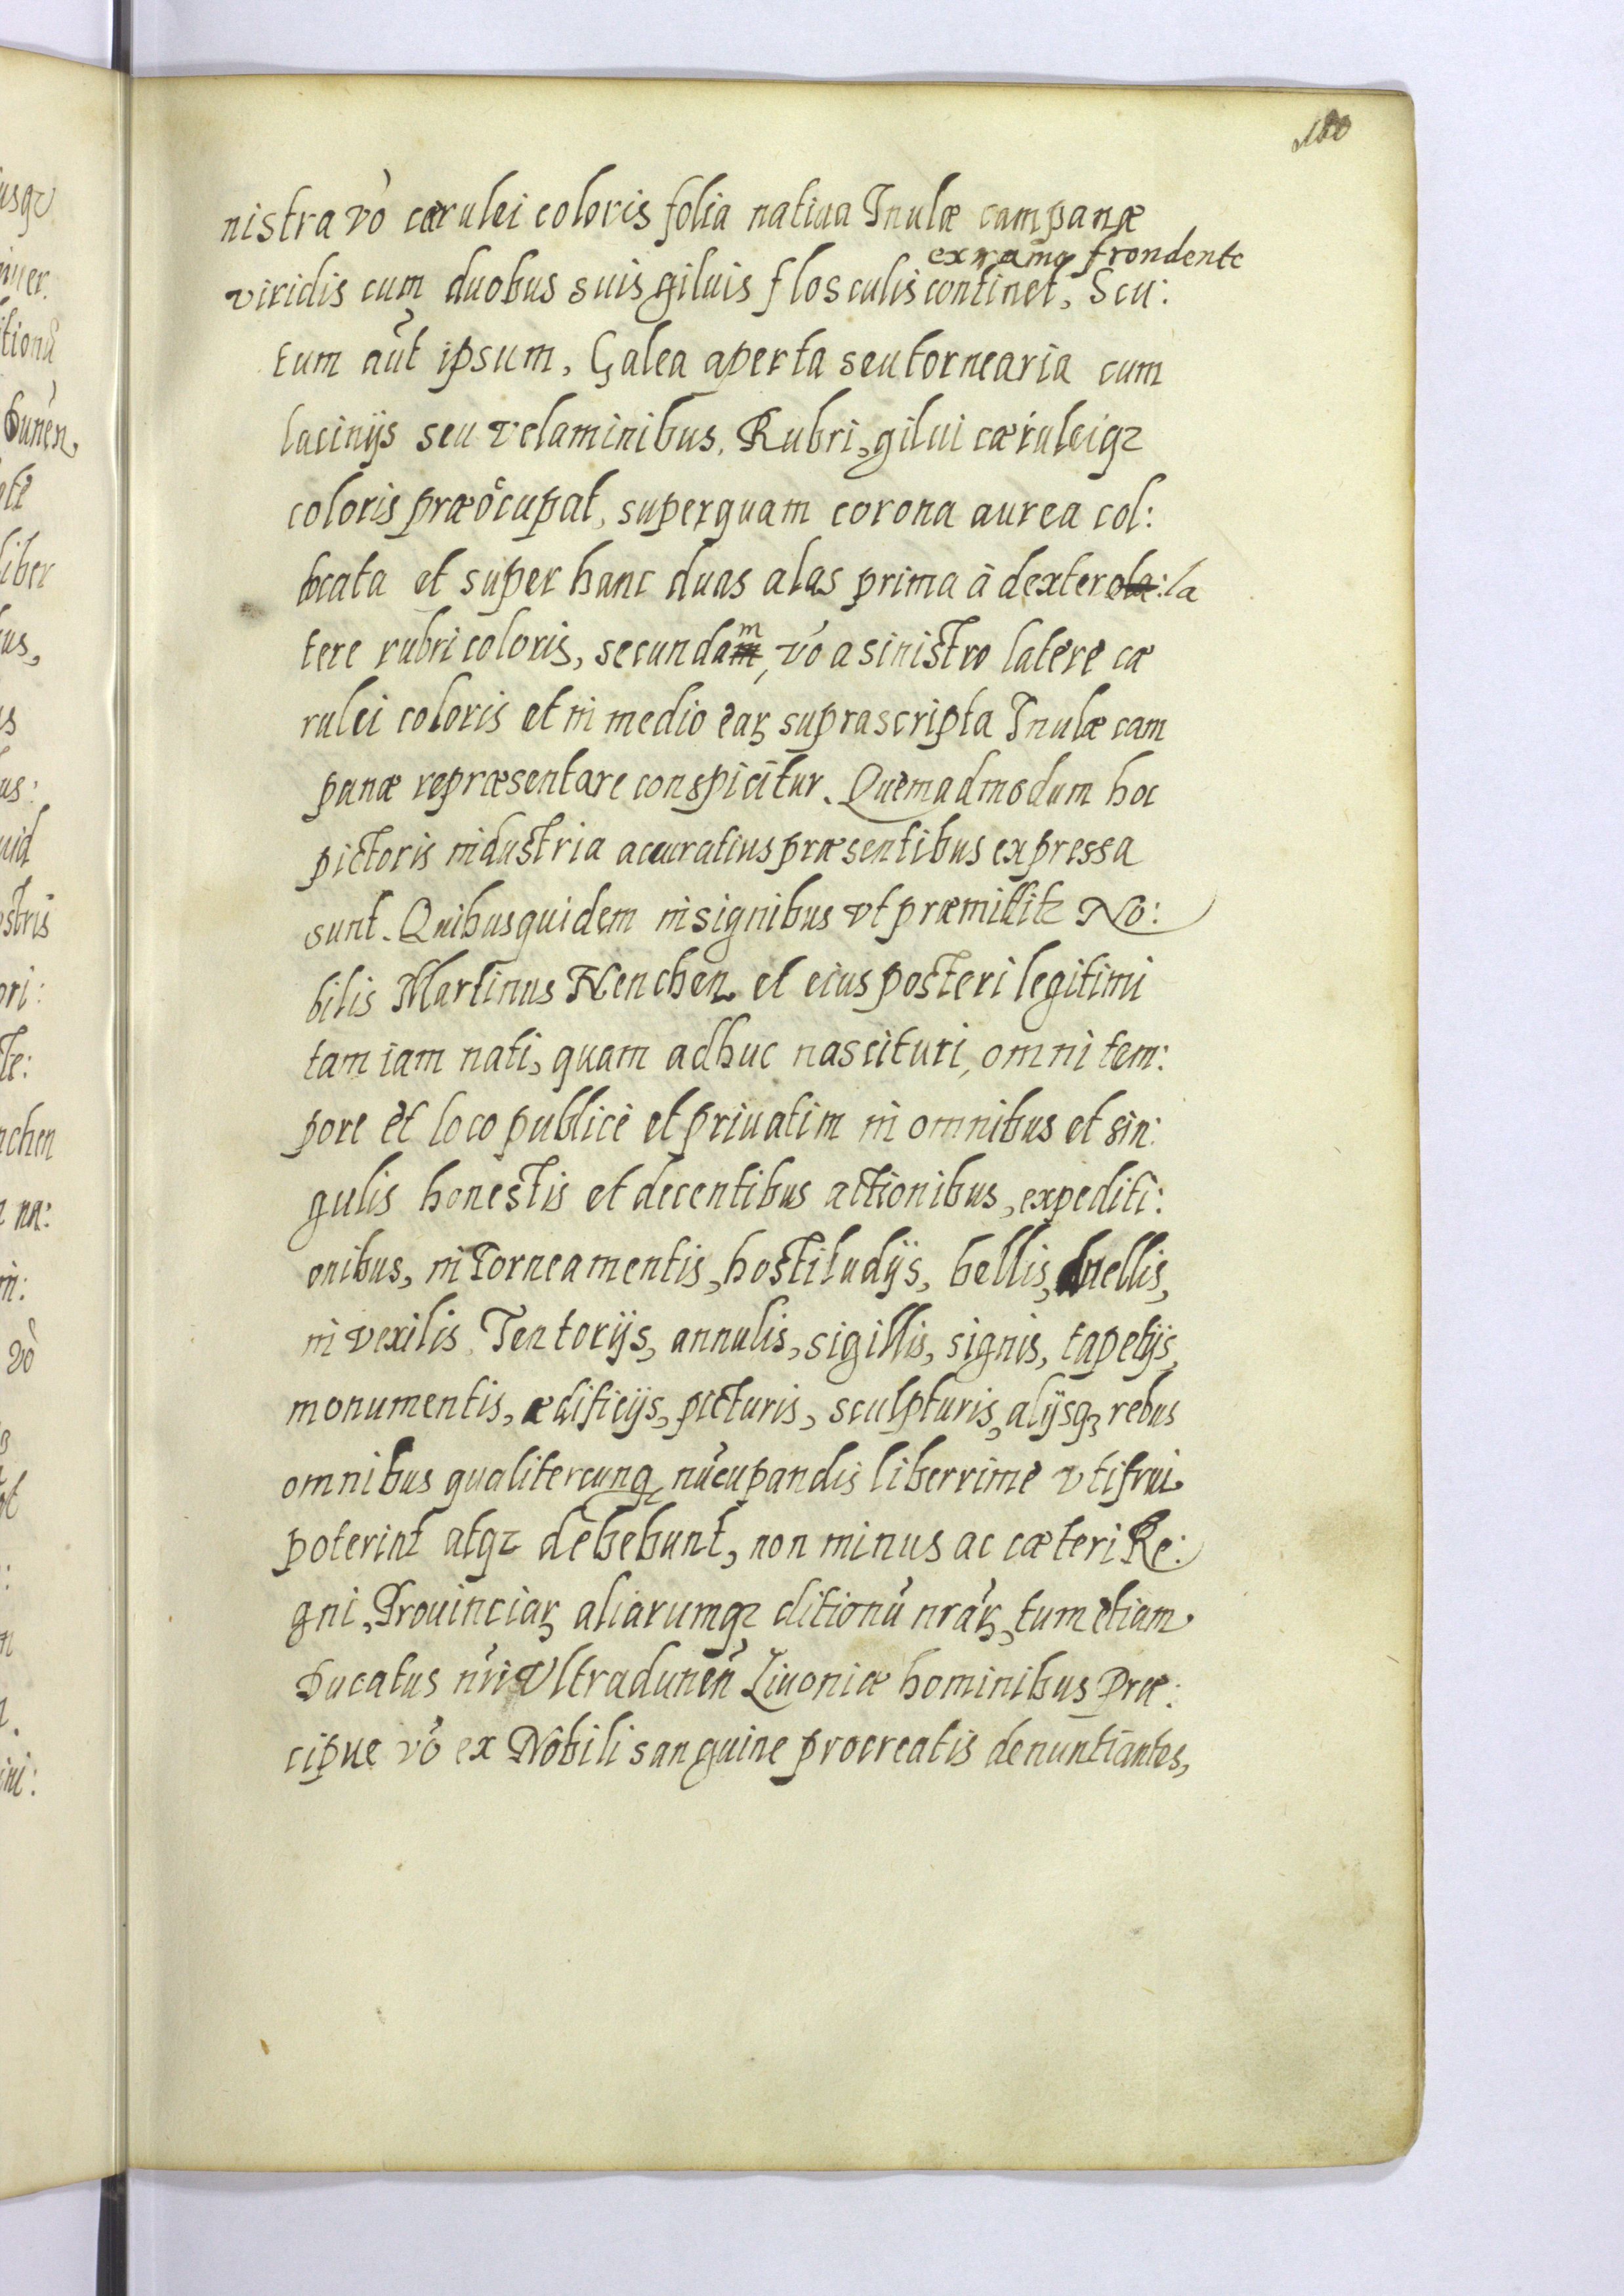 180
nistra vò cærulei coloris folia natiua Inulæ campanæ
ex ramo frondente
viridis cum duobus suis giluis flosculis continet, Scu:
tum aūt ipsum, Galea aperta seu tornearia cum
lacinijs seu velaminibus, Rubri, gilui cæruleiqꝫ
coloris præocupat, superquam corona aurea col:
locata et super hanc duas alas prima à dextero la: la
tere rubri coloris, secundam, vò a sinistro latere cæ
rulei coloris et in medio eaꝝ suprascripta Inulæ cam
panæ repræsentare conspicitur. Quemadmodum hoc
pictoris industria accuratius præsentibus expressa
sunt. Quibusquidem insignibus vt præmittitꝫ No:
bilis Martinus Henchen et eius posteri legitimi
tam iam nati, quam adhuc nascituri, omni tem:
pore et loco publicè et priuatim in omnibus et sin:
gulis honestis et decentibus actionibus, expediti:
onibus, in Torneamentis, hostiludijs, bellis, duellis,
in vexilis Tentorijs, annulis, sigillis, signis, tapetijs,
monumentis, ædificijs, picturis, sculpturis, alijsqꝫ rebus
omnibus qualitercunqꝫ nūcupandis liberrime vti frui
poterint atqꝫ debebunt, non minus ac cæteri Re:
gni, Prouinciaꝝ aliarumqꝫ ditionū nrāꝝ, tum etiam
Ducatus nri Vltradunen̄ Liuoniæ hominibus Præ:
cipue vò ex Nobili sanguine procreatis denuntiantes,